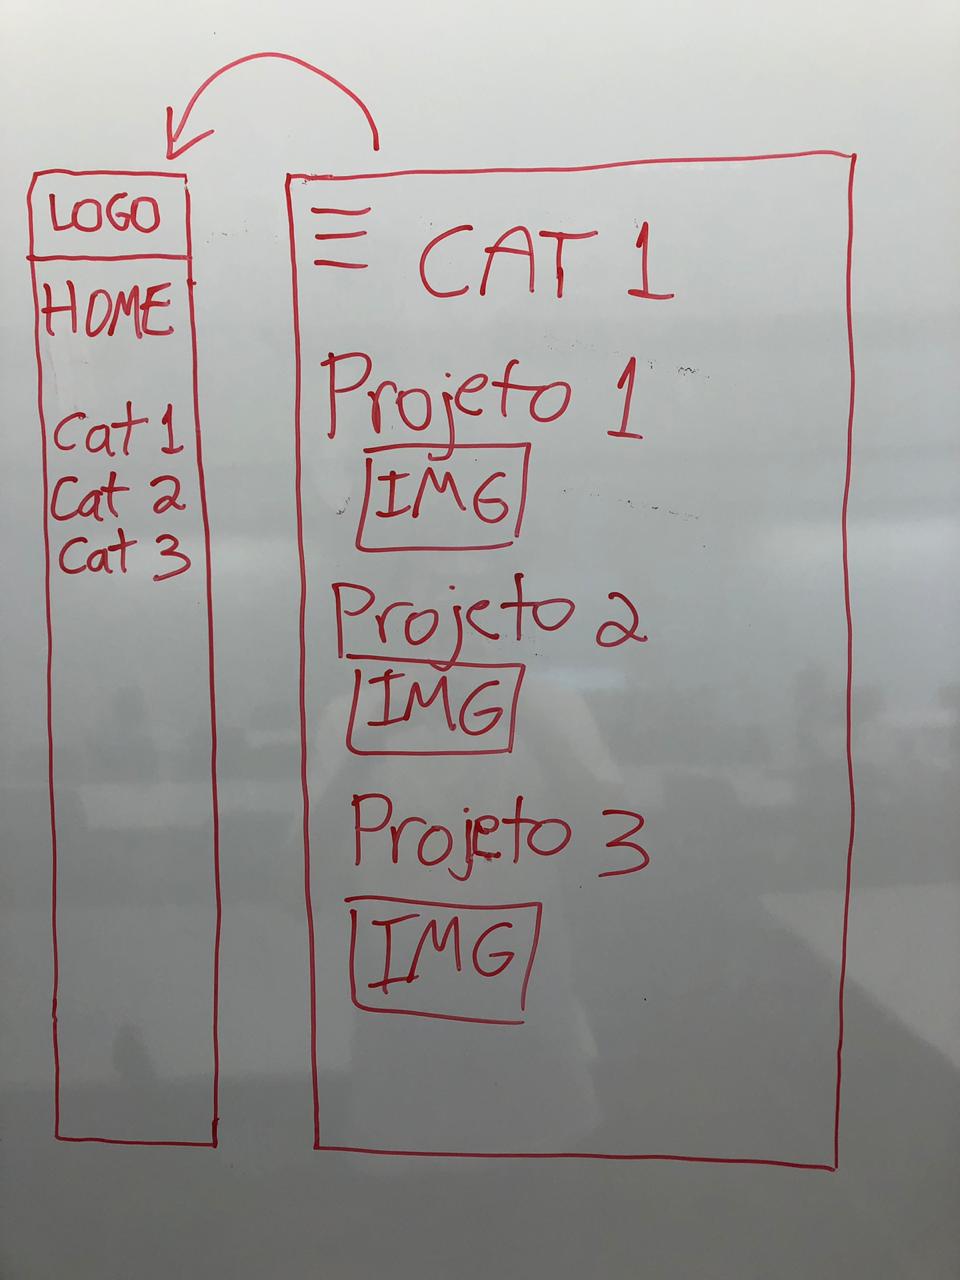 LOGO
HOME
Cat 1
Cat 2
Cat 3
CAT 1
Projeto 1
IMG
Projeto 2
IMG
Projeto 3
IMG